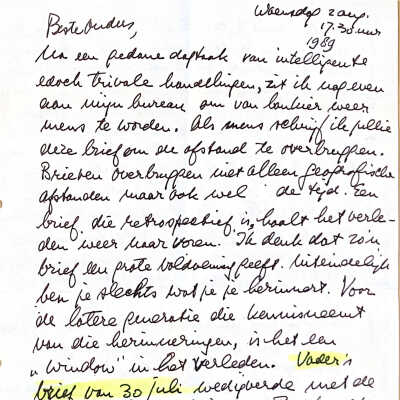 Woensdag 2 aug.
17.30 uur
1989
Beste Ouders,
Na een gedane dagtaak van intelligente
edoch triviale handelingen, zit ik nog even
aan mijn bureau om van bankier weer
mens te worden. Als mens schrijf ik jullie
deze brief om de afstand te overbruggen.
Brieven overbruggen niet alleen geografische
afstanden maar ook wel de tijd. Een
brief, die retrospectief is, haalt het verle-
den weer naar voren. Ik denk dat zo'n
brief een grote voldoening geeft. Uiteindelijk
ben je slechts wat je je herinnert. Voor
de latere generatie die kennisneemt
van die herinneringen, is het een
„window" in het verleden. Vader's
brief van 30 juli wedijverde met de